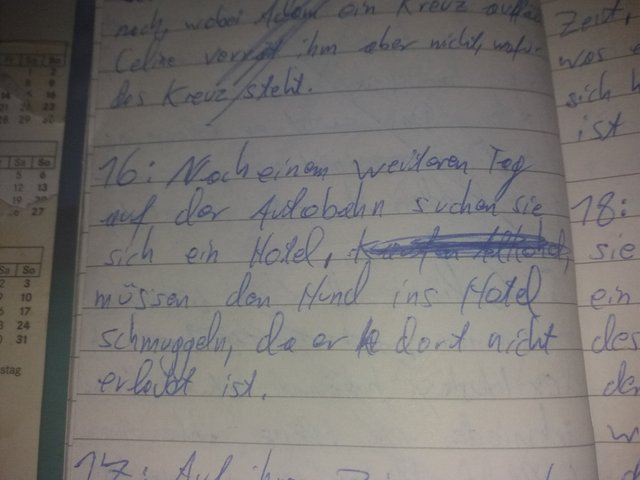 noch, wobei Adam ein Kreuz
Celine verrät ihm aber nicht, wofür
das Kreuz steht.
16: Nach einem weiteren Tag
auf der Autobahn suchen sie
sich ein Hotel,
müssen den Hund ins Hotel
schmuggeln, da er dort nicht
erlaubt ist.
17: Auf ihrem
Zeit,
was
sich
ist
18:
sie
ein
des
der
Fr Sa So
1 2
8 9
14 15 16
21 22 23
28 29 30
Sa So
5 6
12 13
19 20
26 27
Sa So
2 3
9 10
16 17
23 24
30 31
stag